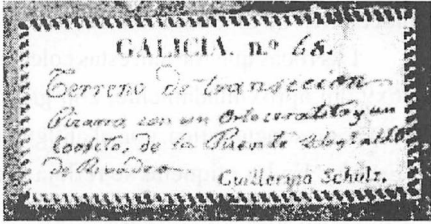 GALICIA. n.º 68.
Terreno de transicion
Pizarra con un Ortoceratito y un
de la Puente
de Rivadeo
Guillermo Schulz.